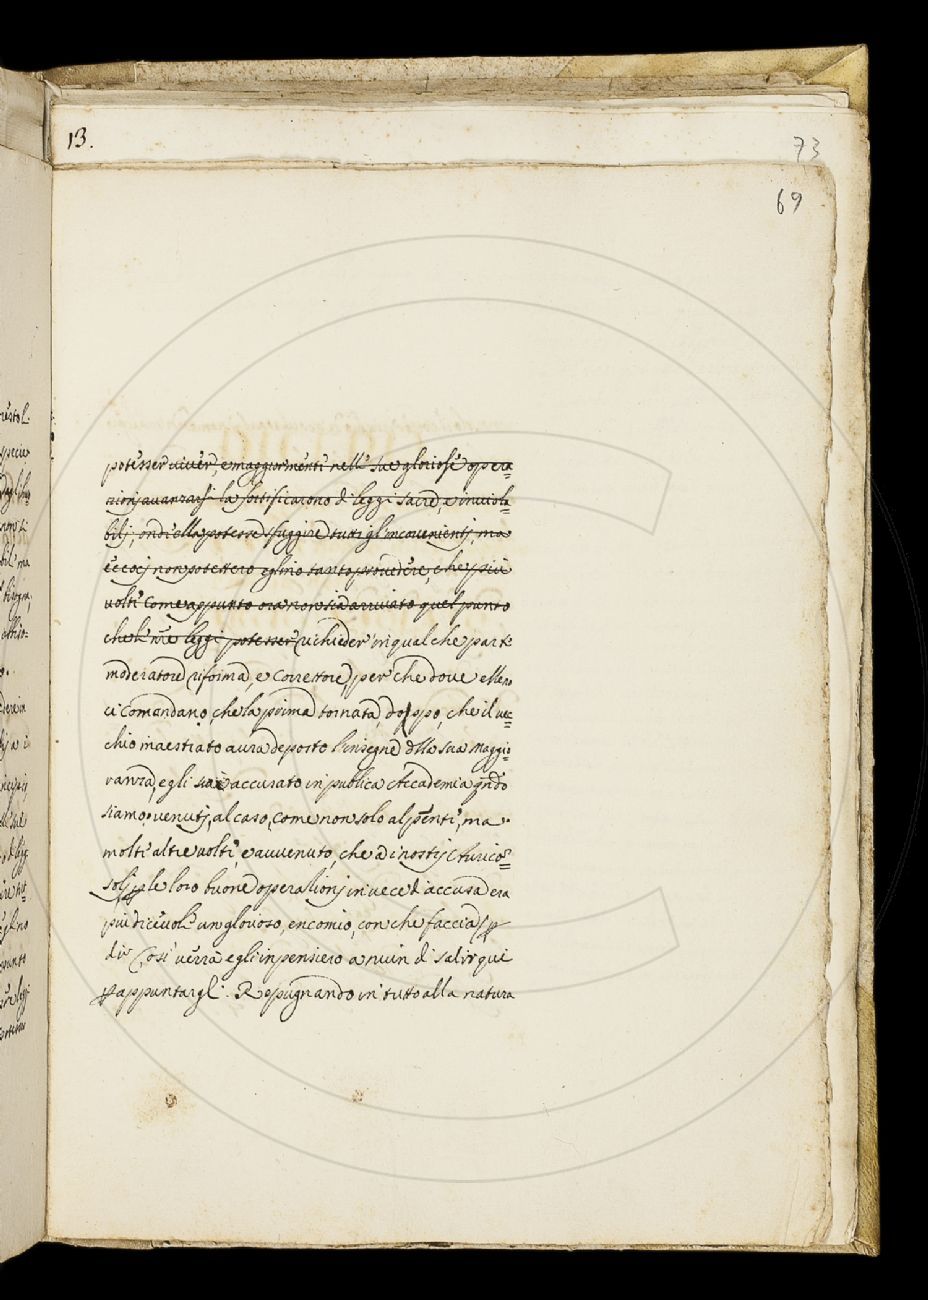 13.
73
69
potesser viver, e maggiormente nelle sue gloriose opera=
zionj avanzarsi la fortificarono di leggi sacre, e inviola=
bilj, ond'ella potesse sfuggire tutti gl'inconvenientj, ma
eccoj non potettero eglino tanto provedere, che più
volte come appunto ora non sia arrivato quel punto
che le nre leggi potesser richieder in qual che parte
moderatore riforma, e correttore, per che dove elleno
ci comandano, che la prima tornata, doppo, che il vec=
chio maestrato aura deposto l'insegne dlla sua Maggio=
ranza, egli sia accusato in publica Accademia qndo
siamo venutj, al caso, come non solo al pente, ma
molte altre volte, e avvenuto, che a i nostrj
solj p le loro buone operazionj in vece di accusa era
più dicevole un glorioso, encomio, con che faccia, p
dir Cosi verrà egli in pensiero a niun di salir qui
p appuntargli. Repugnando in tutto alla natura